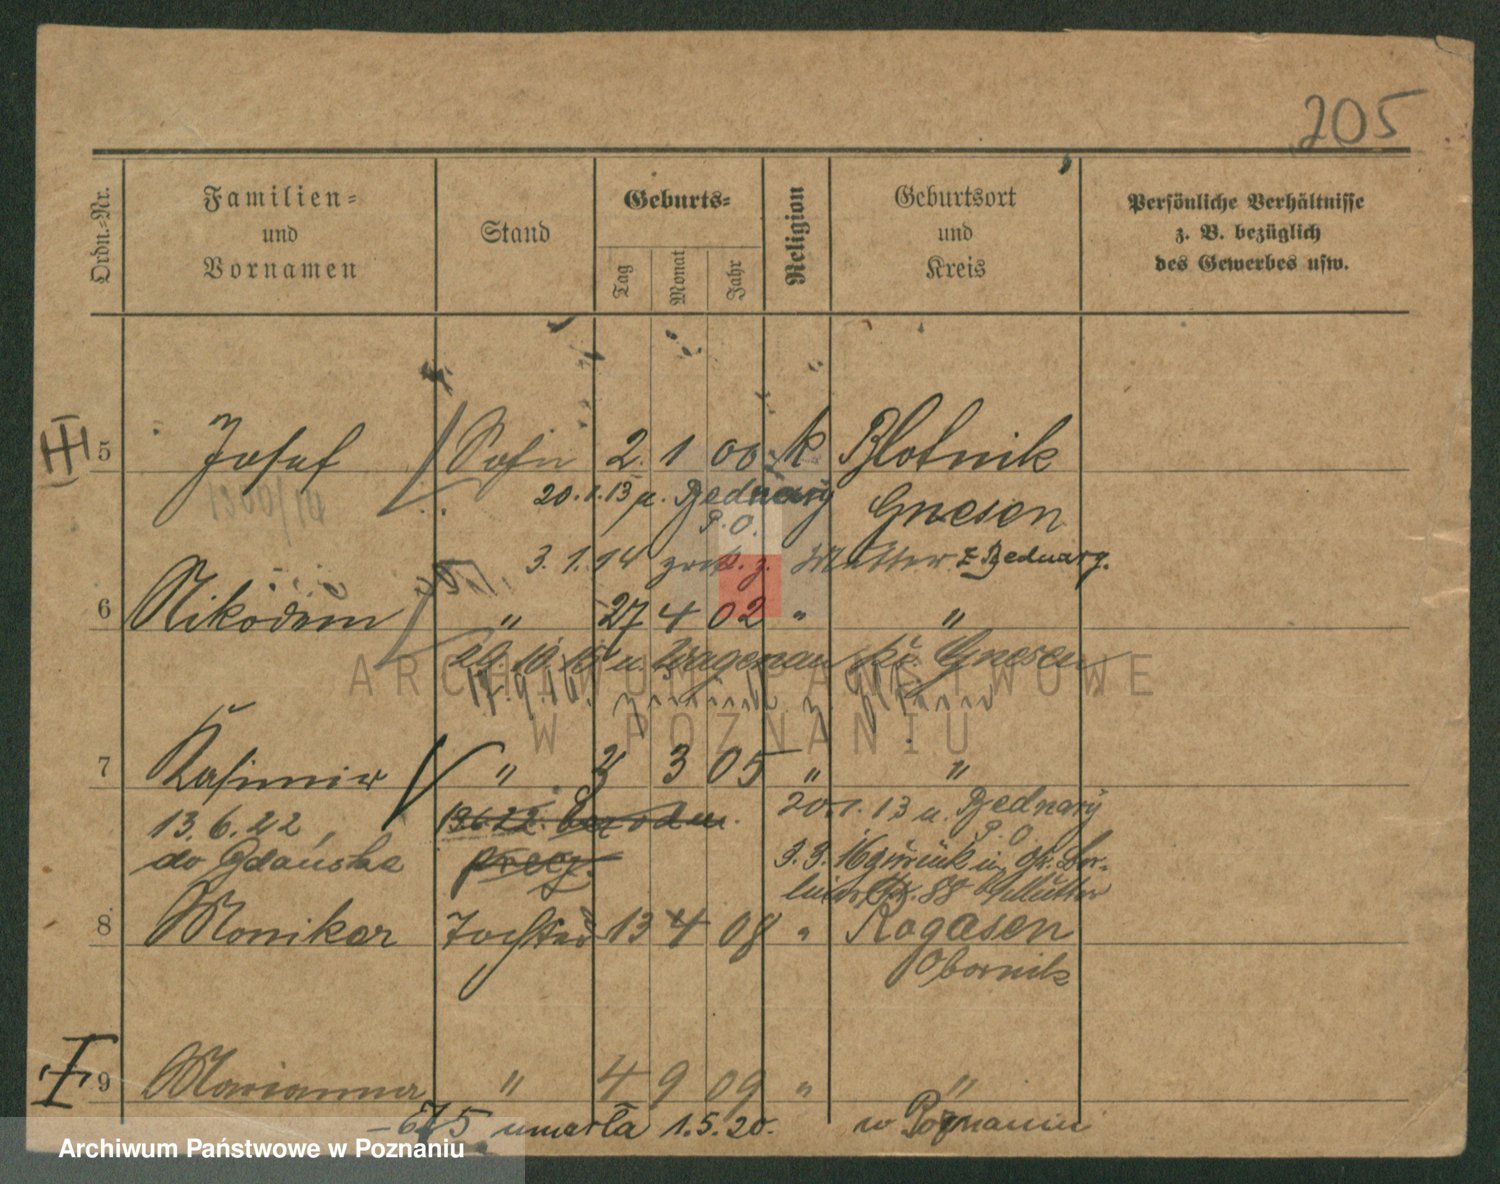 205
Ordn.-Nr.
Familien-
und
Vornamen
Stand
Geburts-
Tag
Monat
Jahr
Religion
Geburtsort
und
Kreis
Persönliche Verhältnisse
z. B. bezüglich
des Gewerbes usw.
5 Josef Sohn 2. 1 00 k Blotnik
20.1.13 n. Bednary Gnesen
P.O.
3.1.14 zrck. z. Mutter z Bednary.
6 Nikodem " 27 4 02 " "
n. Wagenau Kr. Gnesen
17.9.16
7 Kasimir " 3 05 " "
20.1.13 n. Bednary
13.6.22 13.6.22. P.O.
do Gdańska 3.3.16 zurück in
88 Mutter
8 Tochter 13 4 08 " Rogasen
Obornik
9 Marianna " 4 9 09 " "
umarła 1.5.20. w Poznaniu
ARCHIWUM PAŃSTWOWE
W POZNANIU
Archiwum Państwowe w Poznaniu